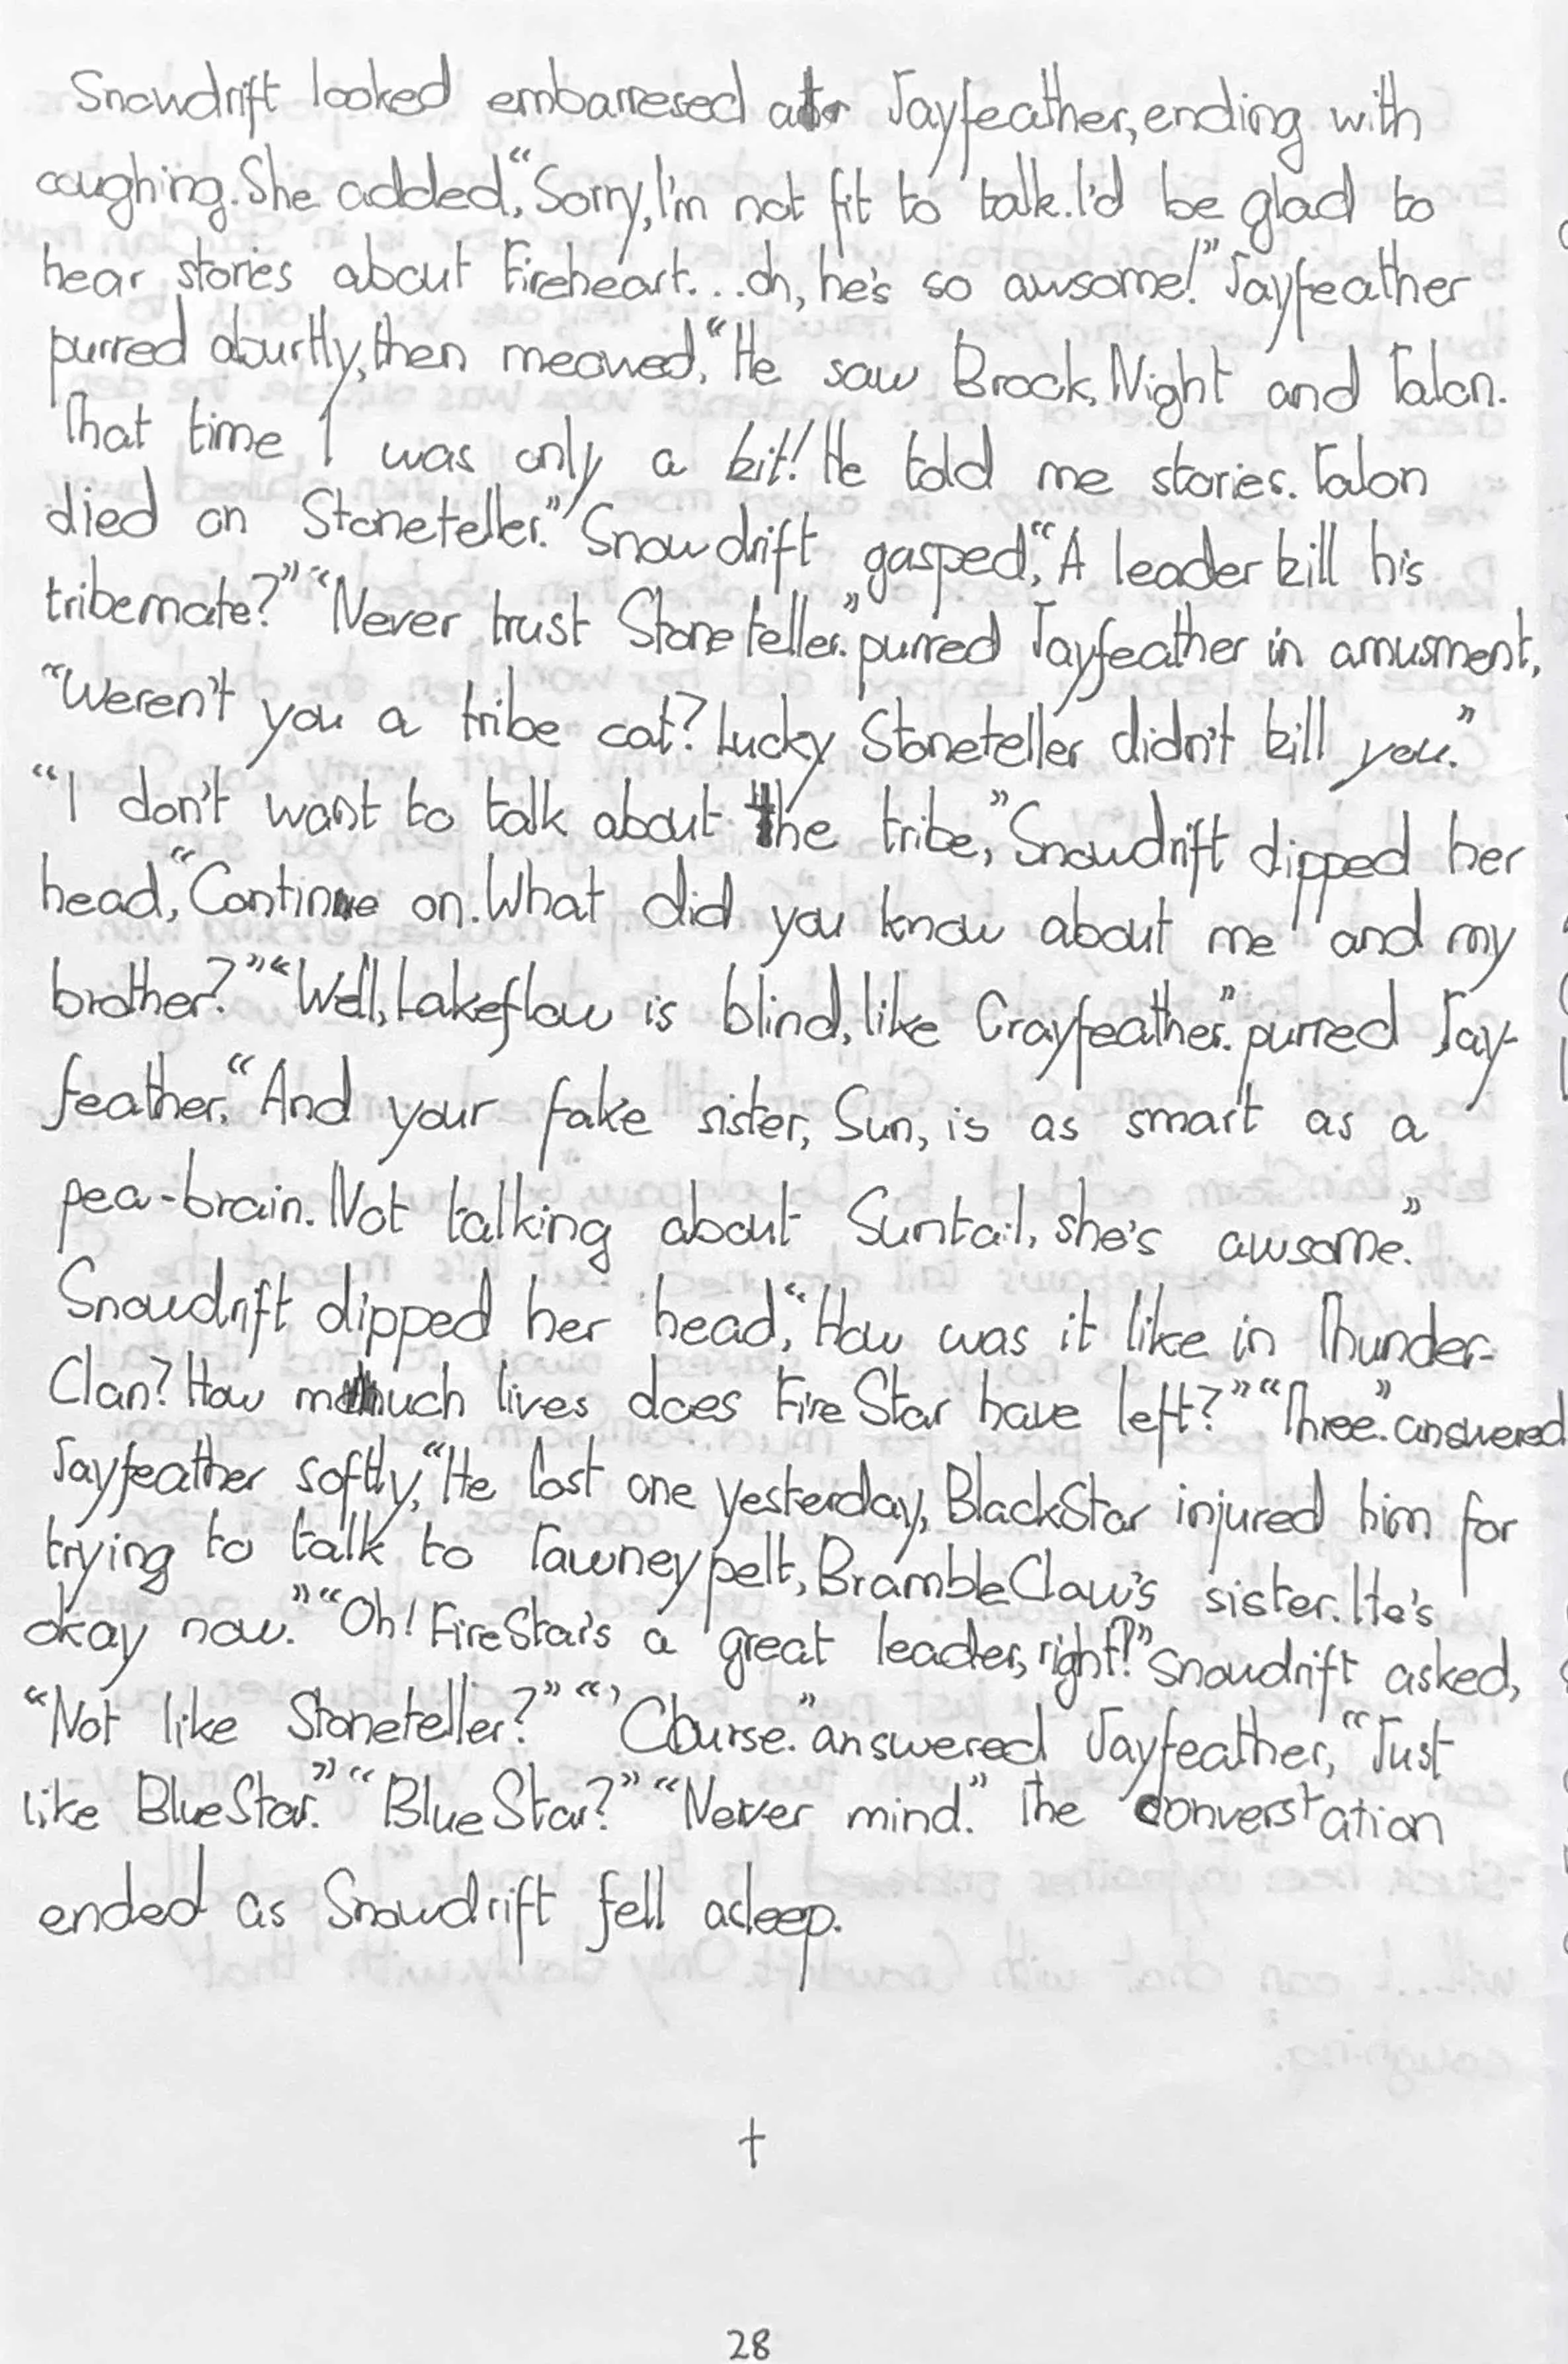 Snowdrift looked embarresed at Jayfeather, ending with
coughing. She added, “Sorry, I'm not fit to talk. I'd be glad to
hear stories about Fireheart...oh, he's so awsome!” Jayfeather
purred abourtly, then meowed, “He saw Brock, Night and Talon.
That time I was only a kit! He told me stories. Talon
died on Stoneteller.” Snowdrift gasped, “A leader kill his
tribemate?” “Never trust Stoneteller.” purred Jayfeather in amusment,
“Weren't you a tribe cat? Lucky Stoneteller didn't kill you.”
“I don't want to talk about the tribe,” Snowdrift dipped her
head, “Continue on. What did you know about me and my
brother?” “Well, Lakeflow is blind, like Crayfeather.” purred Jay-
feather, “And your fake sister, Sun, is as smart as a
pea-brain. Not talking about Suntail, she's awsome.”
Snowdrift dipped her head, “How was it like in Thunder-
Clan? How much lives does FireStar have left?” “Three.” answered
Jayfeather softly, “He lost one yesterday, BlackStar injured him for
trying to talk to Tawneypelt, BrambleClaw's sister. He's
okay now.” “Oh! FireStar's a great leader, right?” Snowdrift asked,
“Not like Stoneteller?” “'Course.” answered Jayfeather, “Just
like BlueStar.” “BlueStar?” “Never mind.” The converstation
ended as Snowdrift fell asleep.
†
28